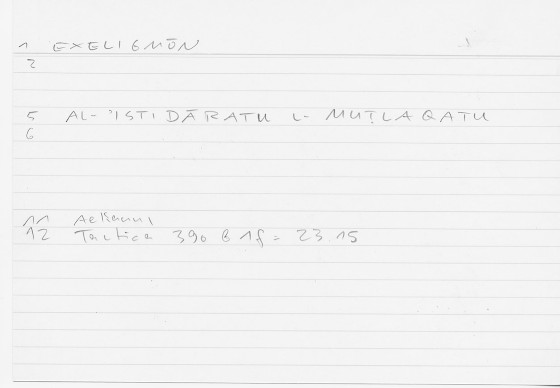 1 EXELIGMŌN
2
5 AL-'ISTIDĀRATU L-MUṬLAQATU
6
11 Aelianus
12 Tactica 390 B 1f = 23.15